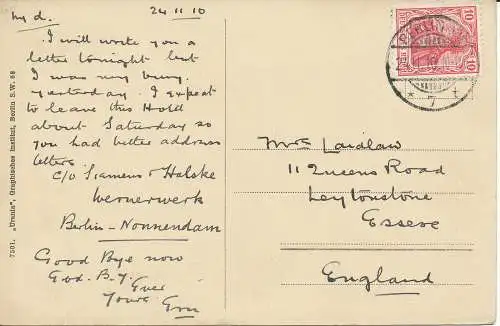 24 11 10
My d.
I will write you a
letter tonight but
I was very busy
yesterday. I expect
to leave this Hotel
about Saturday so
you had better address
letters
c/o Siemens & Halske
Wernerwerk
Berlin - Nonnendam
Good Bye now
God. B. Y.
Ever
Yours
Mrs Laidlaw
11 Queens Road
Leytonstone
Essex
England
7501. „Urania", Graphisches Institut, Berlin S.W. 68
10 10
BERLIN
* 7 t